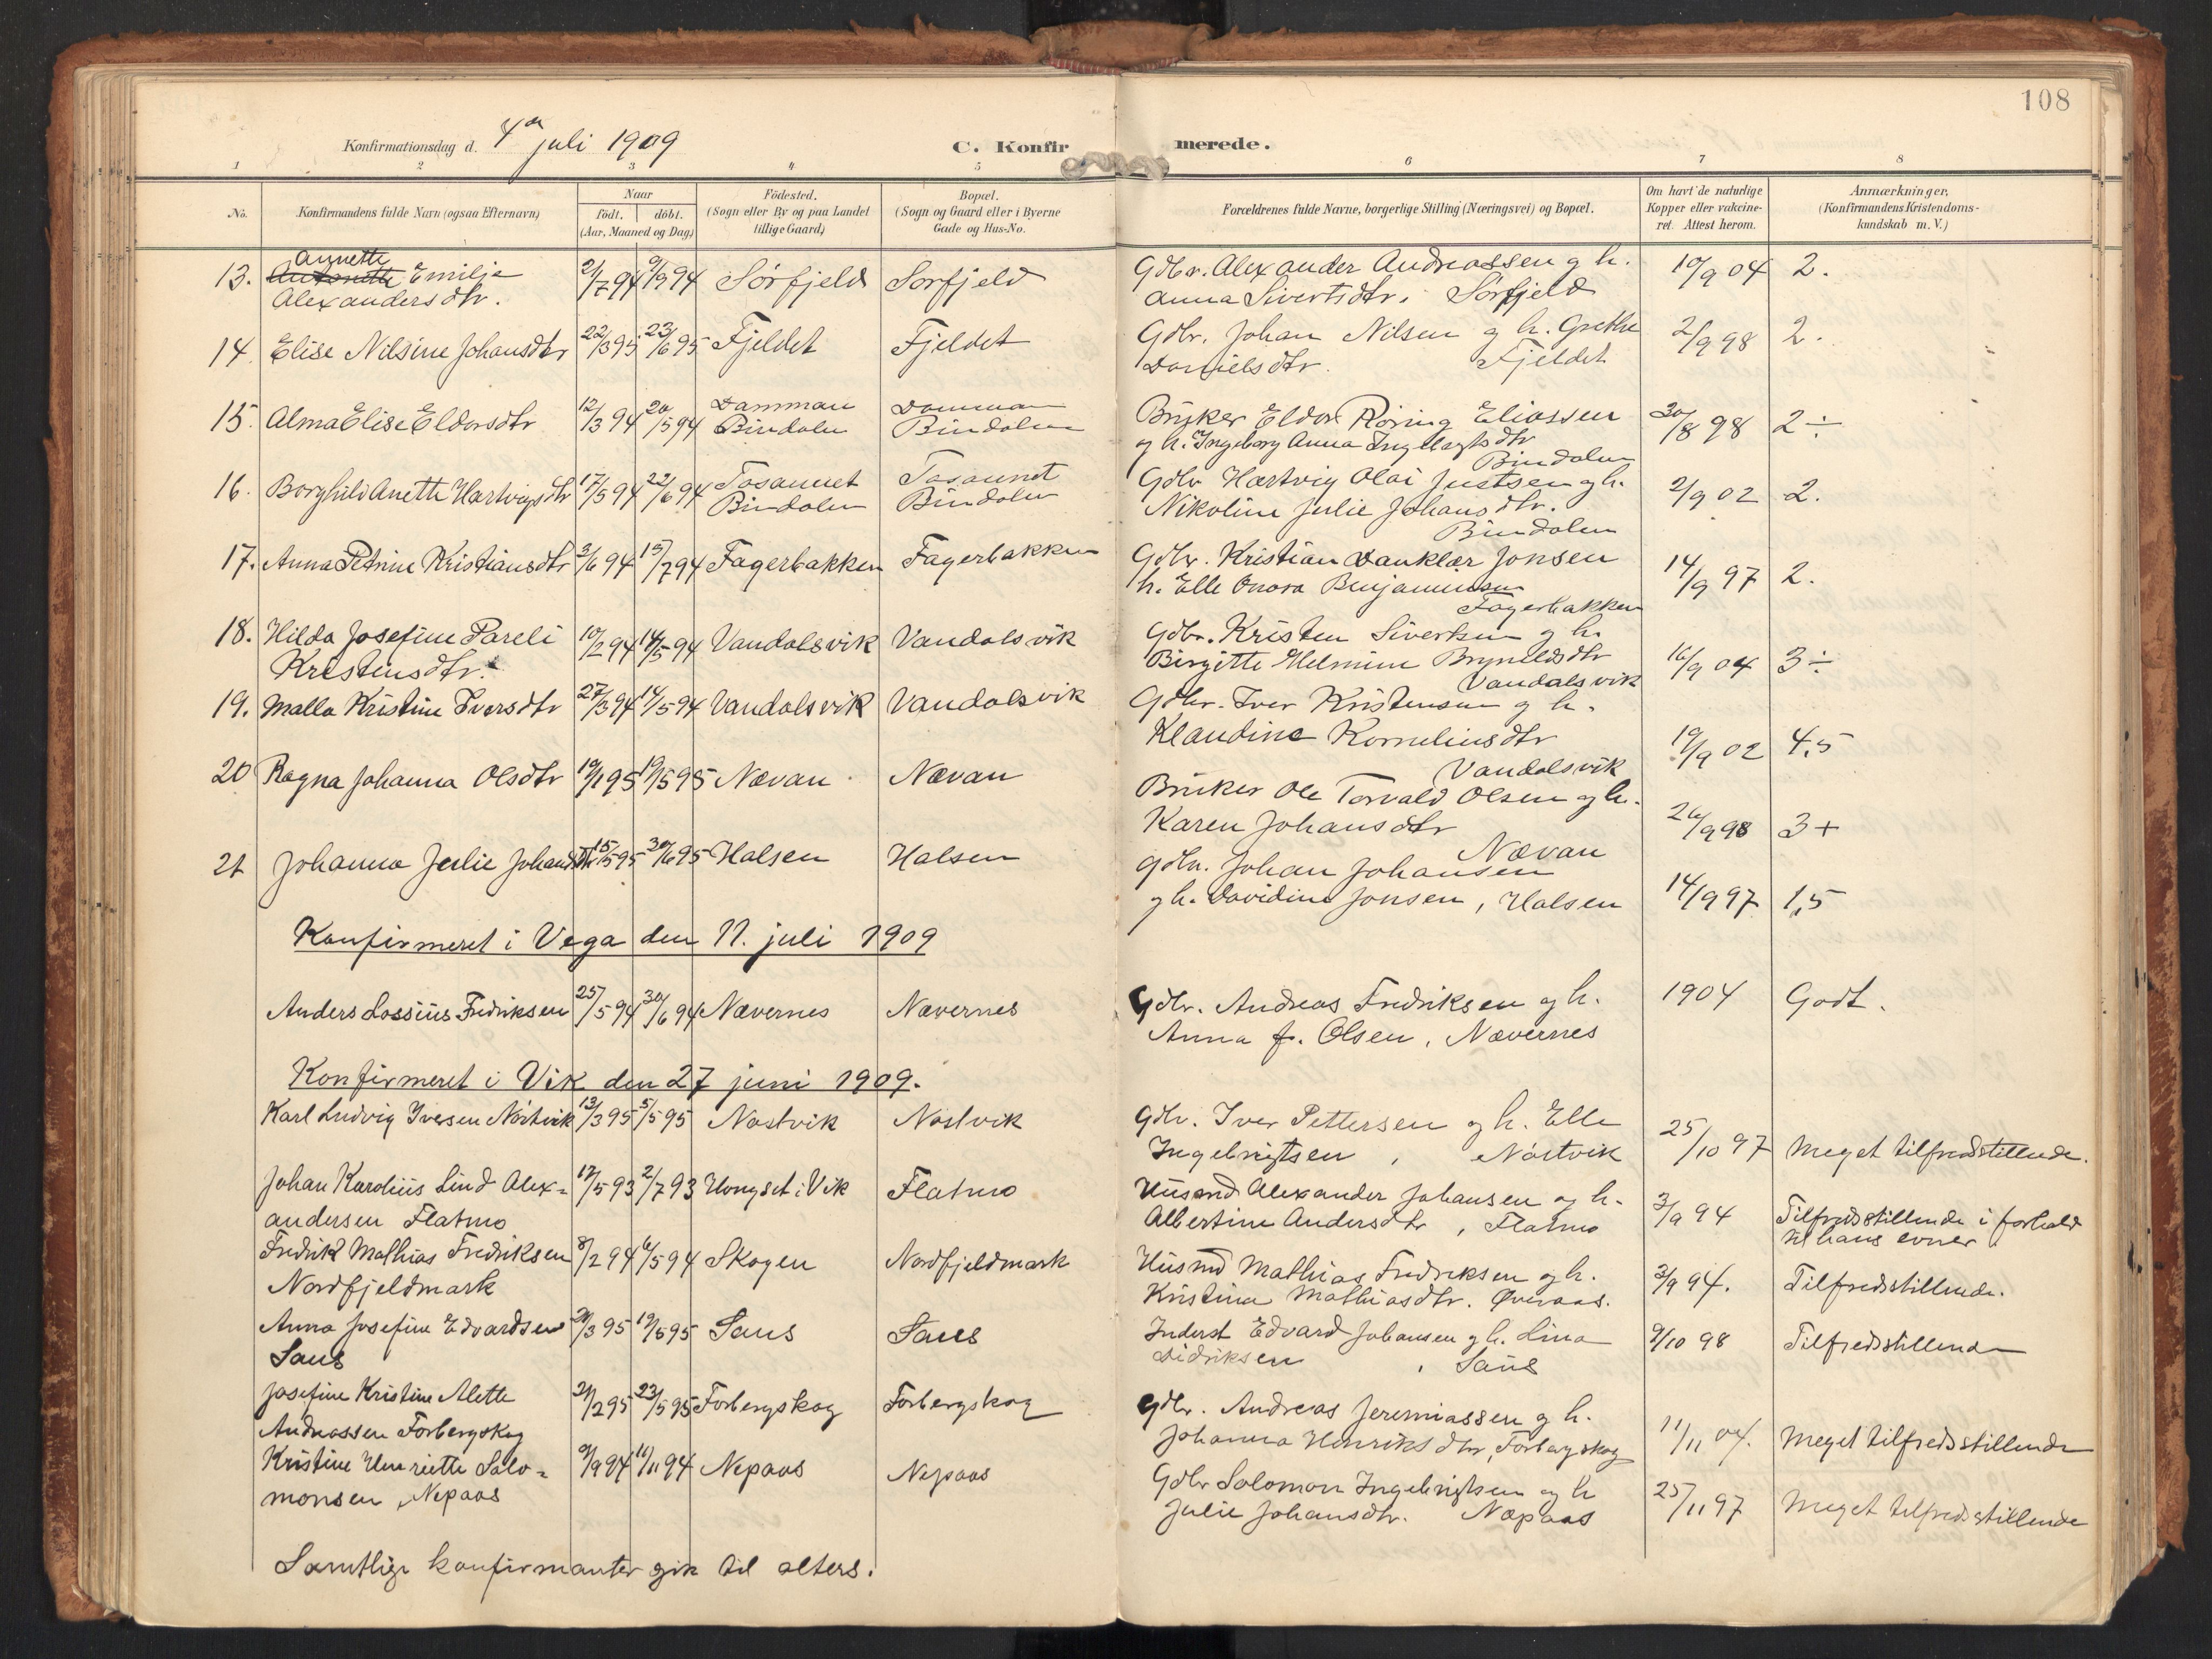 108
Konfirmationsdag d. 4de juli 1909
C. Konfirmerede.
1 2 3 4 5 6 7 8
No.
Konfirmandens fulde Navn (ogsaa Efternavn)
Naar
født. døbt.
(Aar, Maaned og Dag)
Fødested.
(Sogn eller By og paa Landet
tillige Gaard)
Bopæl.
(Sogn og Gaard eller i Byerne
Gade og Hus-No.
Forældrenes fulde Navne, borgerlige Stilling (Næringsvei) og Bopæl.
Om havt de naturlige
Kopper eller vakcine-
ret. Attest herom.
Anmærkninger,
(Konfirmandens Kristendoms-
kundskab m. V.)
Annette
13. Emilie 2/7 94 9/9 94 Sørfjeld Sørfjeld Gdbr. Alexander Andreassen og h. 10/9 04 2.
Alexandersdtr. Anna Sivertsdtr. Sørfjeld
14. Elise Nilsine Johansdtr 22/3 95 23/6 95 Fjeldet Fjeldet Gdbr. Johan Nilsen og h. Grethe 2/9 98 2.
Danielsdtr. Fjeldet
15. Alma Elise Eldorsdtr 12/3 94 20/5 94 Damman Bindalen Damman Bindalen Bruker Eldor Röring Eliassen 30/8 98 2÷
og h. Ingeborg Anna Ingebrigtsdtr
Bindalen
16. Borghild Anette Hartvigsdtr 17/5 94 22/6 94 Tosaunet Bindalen Tosaunet Bindalen Gdbr Hartvig Olai Justsen og h. 2/9 02 2.
Nikoline Julie Johansdtr.
Bindalen
17. Anna Petrine Kristiansdtr 3/6 94 15/7 94 Fagerbakken Fagerbakken Gdbr. Kristian Danklær Jonsen 14/9 97 2.
h. Elle Onora Benjaminsen
Fagerbakken
18. Hilda Josefine Pareli 10/2 94 14/5 94 Vandalsvik Vandalsvik Gdbr. Kristen Sivertsen og h. 16/9 04 3÷
Kristensdtr. Birgitte Helmine Brynildsdtr
Vandalsvik
19. Malla Kristine Iversdtr 27/3 94 14/5 94 Vandalsvik Vandalsvik Gdbr. Iver Kristensen og h. 19/9 02 4,5
Klaudine Korneliusdtr
Vandalsvik
20 Ragna Johanna Olsdtr 19/1 95 19/5 95 Nævan Nævan Bruker Ole Torvald Olsen og h. 26/9 98 3+
Karen Johansdtr
Nævan
21 Johanna Julie Johansdtr 15/5 95 30/6 95 Halsen Halsen Gdbr. Johan Johansen 14/9 97 1,5
og h. Davidine Jonsen, Halsen
Konfirmeret i Vega den 11. juli 1909
Anders Lossius Fredriksen 25/5 94 30/6 94 Nævernes Nævernes Gdbr. Andreas Fredriksen og h. 1904 Godt.
Anna f. Olsen, Nævernes
Konfirmeret i Vik den 27 juni 1909.
Karl Ludvig Iversen Nøstvik 13/3 95 5/5 95 Nøstvik Nøstvik Gdbr. Iver Pettersen og h. Elle 25/10 97 Meget tilfredsstillende.
Ingebrigtsen, Nøstvik
Johan Karolius Lind Alex- 12/5 93 2/7 93 Hongset i Vik Flatmo Husmd Alexander Johansen og h. 3/9 94 Tilfredsstillende i forhold
andersen Flatmo Albertine Andersdtr, Flatmo til hans evner
Fredrik Mathias Fredriksen 8/2 94 6/5 94 Skogen Nordfjeldmark Husmd Mathias Fredriksen og h. 3/9 94. Tilfredsstillende.
Nordfjeldmark Kristina Mathiasdtr. Øveraas.
Anna Josefine Edvardsen 28/3 95 19/5 95 Saus Saus Inderst Edvard Johansen og h. Lina 9/10 98 Tilfredsstillende
Saus Didriksen, Saus
Josefine Kristine Alette 21/2 95 23/5 95 Forbergskog Forbergskog Gdbr. Andreas Jeremiassen og h. 11/11 04. Meget tilfredsstillende
Andreassen Forbergskog Johanna Henriksdtr, Forbergskog
Kristine Henriette Salo- 9/9 94 11/11 94 Nepaas Nepaas Gdbr Salomon Ingebrigtsen og h 25/11 97 Meget tilfredsstillende
monsen, Nepaas Julie Johansdtr. Næpaas
Samtlige konfirmanter gik til alters.